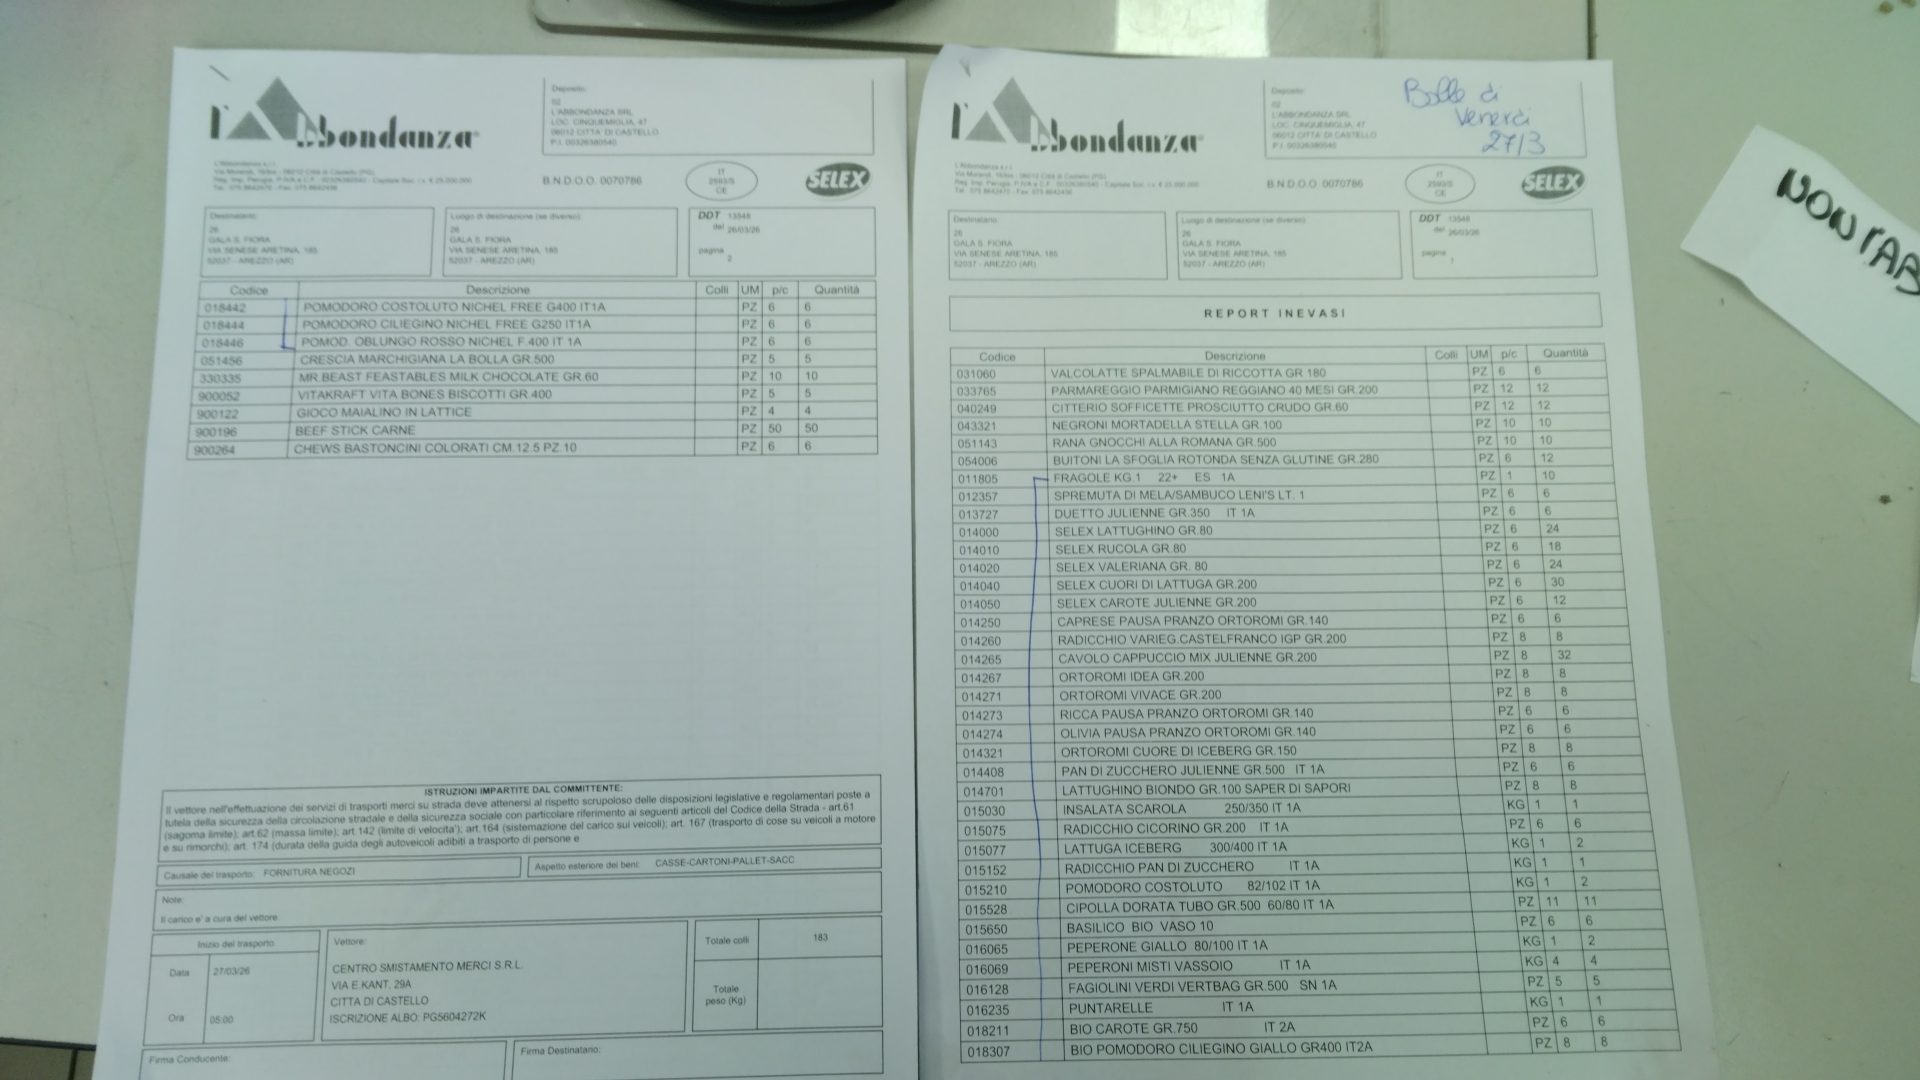 l'Abbondanza
Deposito:
02
L'ABBONDANZA SRL
LOC. CINQUEMIGLIA, 47
06012 CITTA' DI CASTELLO
P.I. 00326380540
B.N.D.O.O. 0070786
IT
2593/S
CE
SELEX
Destinatario:
26
GALA S. FIORA
VIA SENESE ARETINA, 185
52037 - AREZZO (AR)
Luogo di destinazione (se diverso)
26
GALA S. FIORA
VIA SENESE ARETINA, 185
52037 - AREZZO (AR)
DDT 13548
del 26/03/26
pagina
2
Codice Descrizione Colli UM p/c Quantità
018442 POMODORO COSTOLUTO NICHEL FREE G400 IT1A PZ 6 6
018444 POMODORO CILIEGINO NICHEL FREE G250 IT1A PZ 6 6
018446 POMOD. OBLUNGO ROSSO NICHEL F.400 IT 1A PZ 6 6
051456 CRESCIA MARCHIGIANA LA BOLLA GR.500 PZ 5 5
330335 MR.BEAST FEASTABLES MILK CHOCOLATE GR.60 PZ 10 10
900052 VITAKRAFT VITA BONES BISCOTTI GR.400 PZ 5 5
900122 GIOCO MAIALINO IN LATTICE PZ 4 4
900196 BEEF STICK CARNE PZ 50 50
900264 CHEWS BASTONCINI COLORATI CM.12.5 PZ.10 PZ 6 6
ISTRUZIONI IMPARTITE DAL COMMITTENTE:
Il vettore nell'effettuazione dei servizi di trasporti merci su strada deve attenersi al rispetto scrupoloso delle disposizioni legislative e regolamentari poste a
tutela della sicurezza della circolazione stradale e della sicurezza sociale con particolare riferimento ai seguenti articoli del Codice della Strada - art.61
(sagoma limite); art.62 (massa limite); art.142 (limite di velocita'); art.164 (sistemazione del carico sui veicoli); art. 167 (trasporto di cose su veicoli a motore
e su rimorchi); art. 174 (durata della guida degli autoveicoli adibiti a trasporto di persone e
Causale del trasporto: FORNITURA NEGOZI
Aspetto esteriore dei beni: CASSE-CARTONI-PALLET-SACC
Note:
Il carico e' a cura del vettore.
Inizio del trasporto
Data 27/03/26
Ora 05:00
Vettore:
CENTRO SMISTAMENTO MERCI S.R.L.
VIA E.KANT. 29A
CITTA DI CASTELLO
ISCRIZIONE ALBO: PG5604272K
Totale colli 183
Totale
peso (Kg)
Firma Conducente:
Firma Destinatario:
l'Abbondanza
Deposito:
02
L'ABBONDANZA SRL
LOC. CINQUEMIGLIA, 47
06012 CITTA' DI CASTELLO
P.I. 00326380540
Bolle di
Venerdì
27/3
B.N.D.O.O. 0070786
IT
2593/S
CE
SELEX
Destinatario:
26
GALA S. FIORA
VIA SENESE ARETINA, 185
52037 - AREZZO (AR)
Luogo di destinazione (se diverso)
26
GALA S. FIORA
VIA SENESE ARETINA, 185
52037 - AREZZO (AR)
DDT 13548
del 26/03/26
pagina
1
REPORT INEVASI
Codice Descrizione Colli UM p/c Quantità
031060 VALCOLATTE SPALMABILE DI RICCOTTA GR 180 PZ 6 6
033765 PARMAREGGIO PARMIGIANO REGGIANO 40 MESI GR.200 PZ 12 12
040249 CITTERIO SOFFICETTE PROSCIUTTO CRUDO GR.60 PZ 12 12
043321 NEGRONI MORTADELLA STELLA GR.100 PZ 10 10
051143 RANA GNOCCHI ALLA ROMANA GR.500 PZ 10 10
054006 BUITONI LA SFOGLIA ROTONDA SENZA GLUTINE GR.280 PZ 6 12
011805 FRAGOLE KG.1 22+ ES 1A PZ 1 10
012357 SPREMUTA DI MELA/SAMBUCO LENI'S LT. 1 PZ 6 6
013727 DUETTO JULIENNE GR.350 IT 1A PZ 6 6
014000 SELEX LATTUGHINO GR.80 PZ 6 24
014010 SELEX RUCOLA GR.80 PZ 6 18
014020 SELEX VALERIANA GR. 80 PZ 6 24
014040 SELEX CUORI DI LATTUGA GR.200 PZ 6 30
014050 SELEX CAROTE JULIENNE GR.200 PZ 6 12
014250 CAPRESE PAUSA PRANZO ORTOROMI GR.140 PZ 6 6
014260 RADICCHIO VARIEG.CASTELFRANCO IGP GR.200 PZ 8 8
014265 CAVOLO CAPPUCCIO MIX JULIENNE GR.200 PZ 8 32
014267 ORTOROMI IDEA GR.200 PZ 8 8
014271 ORTOROMI VIVACE GR.200 PZ 8 8
014273 RICCA PAUSA PRANZO ORTOROMI GR.140 PZ 6 6
014274 OLIVIA PAUSA PRANZO ORTOROMI GR.140 PZ 6 6
014321 ORTOROMI CUORE DI ICEBERG GR.150 PZ 8 8
014408 PAN DI ZUCCHERO JULIENNE GR.500 IT 1A PZ 6 6
014701 LATTUGHINO BIONDO GR.100 SAPER DI SAPORI PZ 8 8
015030 INSALATA SCAROLA 250/350 IT 1A KG 1 1
015075 RADICCHIO CICORINO GR.200 IT 1A PZ 6 6
015077 LATTUGA ICEBERG 300/400 IT 1A KG 1 2
015152 RADICCHIO PAN DI ZUCCHERO IT 1A KG 1 1
015210 POMODORO COSTOLUTO 82/102 IT 1A KG 1 2
015528 CIPOLLA DORATA TUBO GR.500 60/80 IT 1A PZ 11 11
015650 BASILICO BIO VASO 10 PZ 6 6
016065 PEPERONE GIALLO 80/100 IT 1A KG 1 2
016069 PEPERONI MISTI VASSOIO IT 1A KG 4 4
016128 FAGIOLINI VERDI VERTBAG GR.500 SN 1A PZ 5 5
016235 PUNTARELLE IT 1A KG 1 1
018211 BIO CAROTE GR.750 IT 2A PZ 6 6
018307 BIO POMODORO CILIEGINO GIALLO GR400 IT2A PZ 8 8
NON TAB